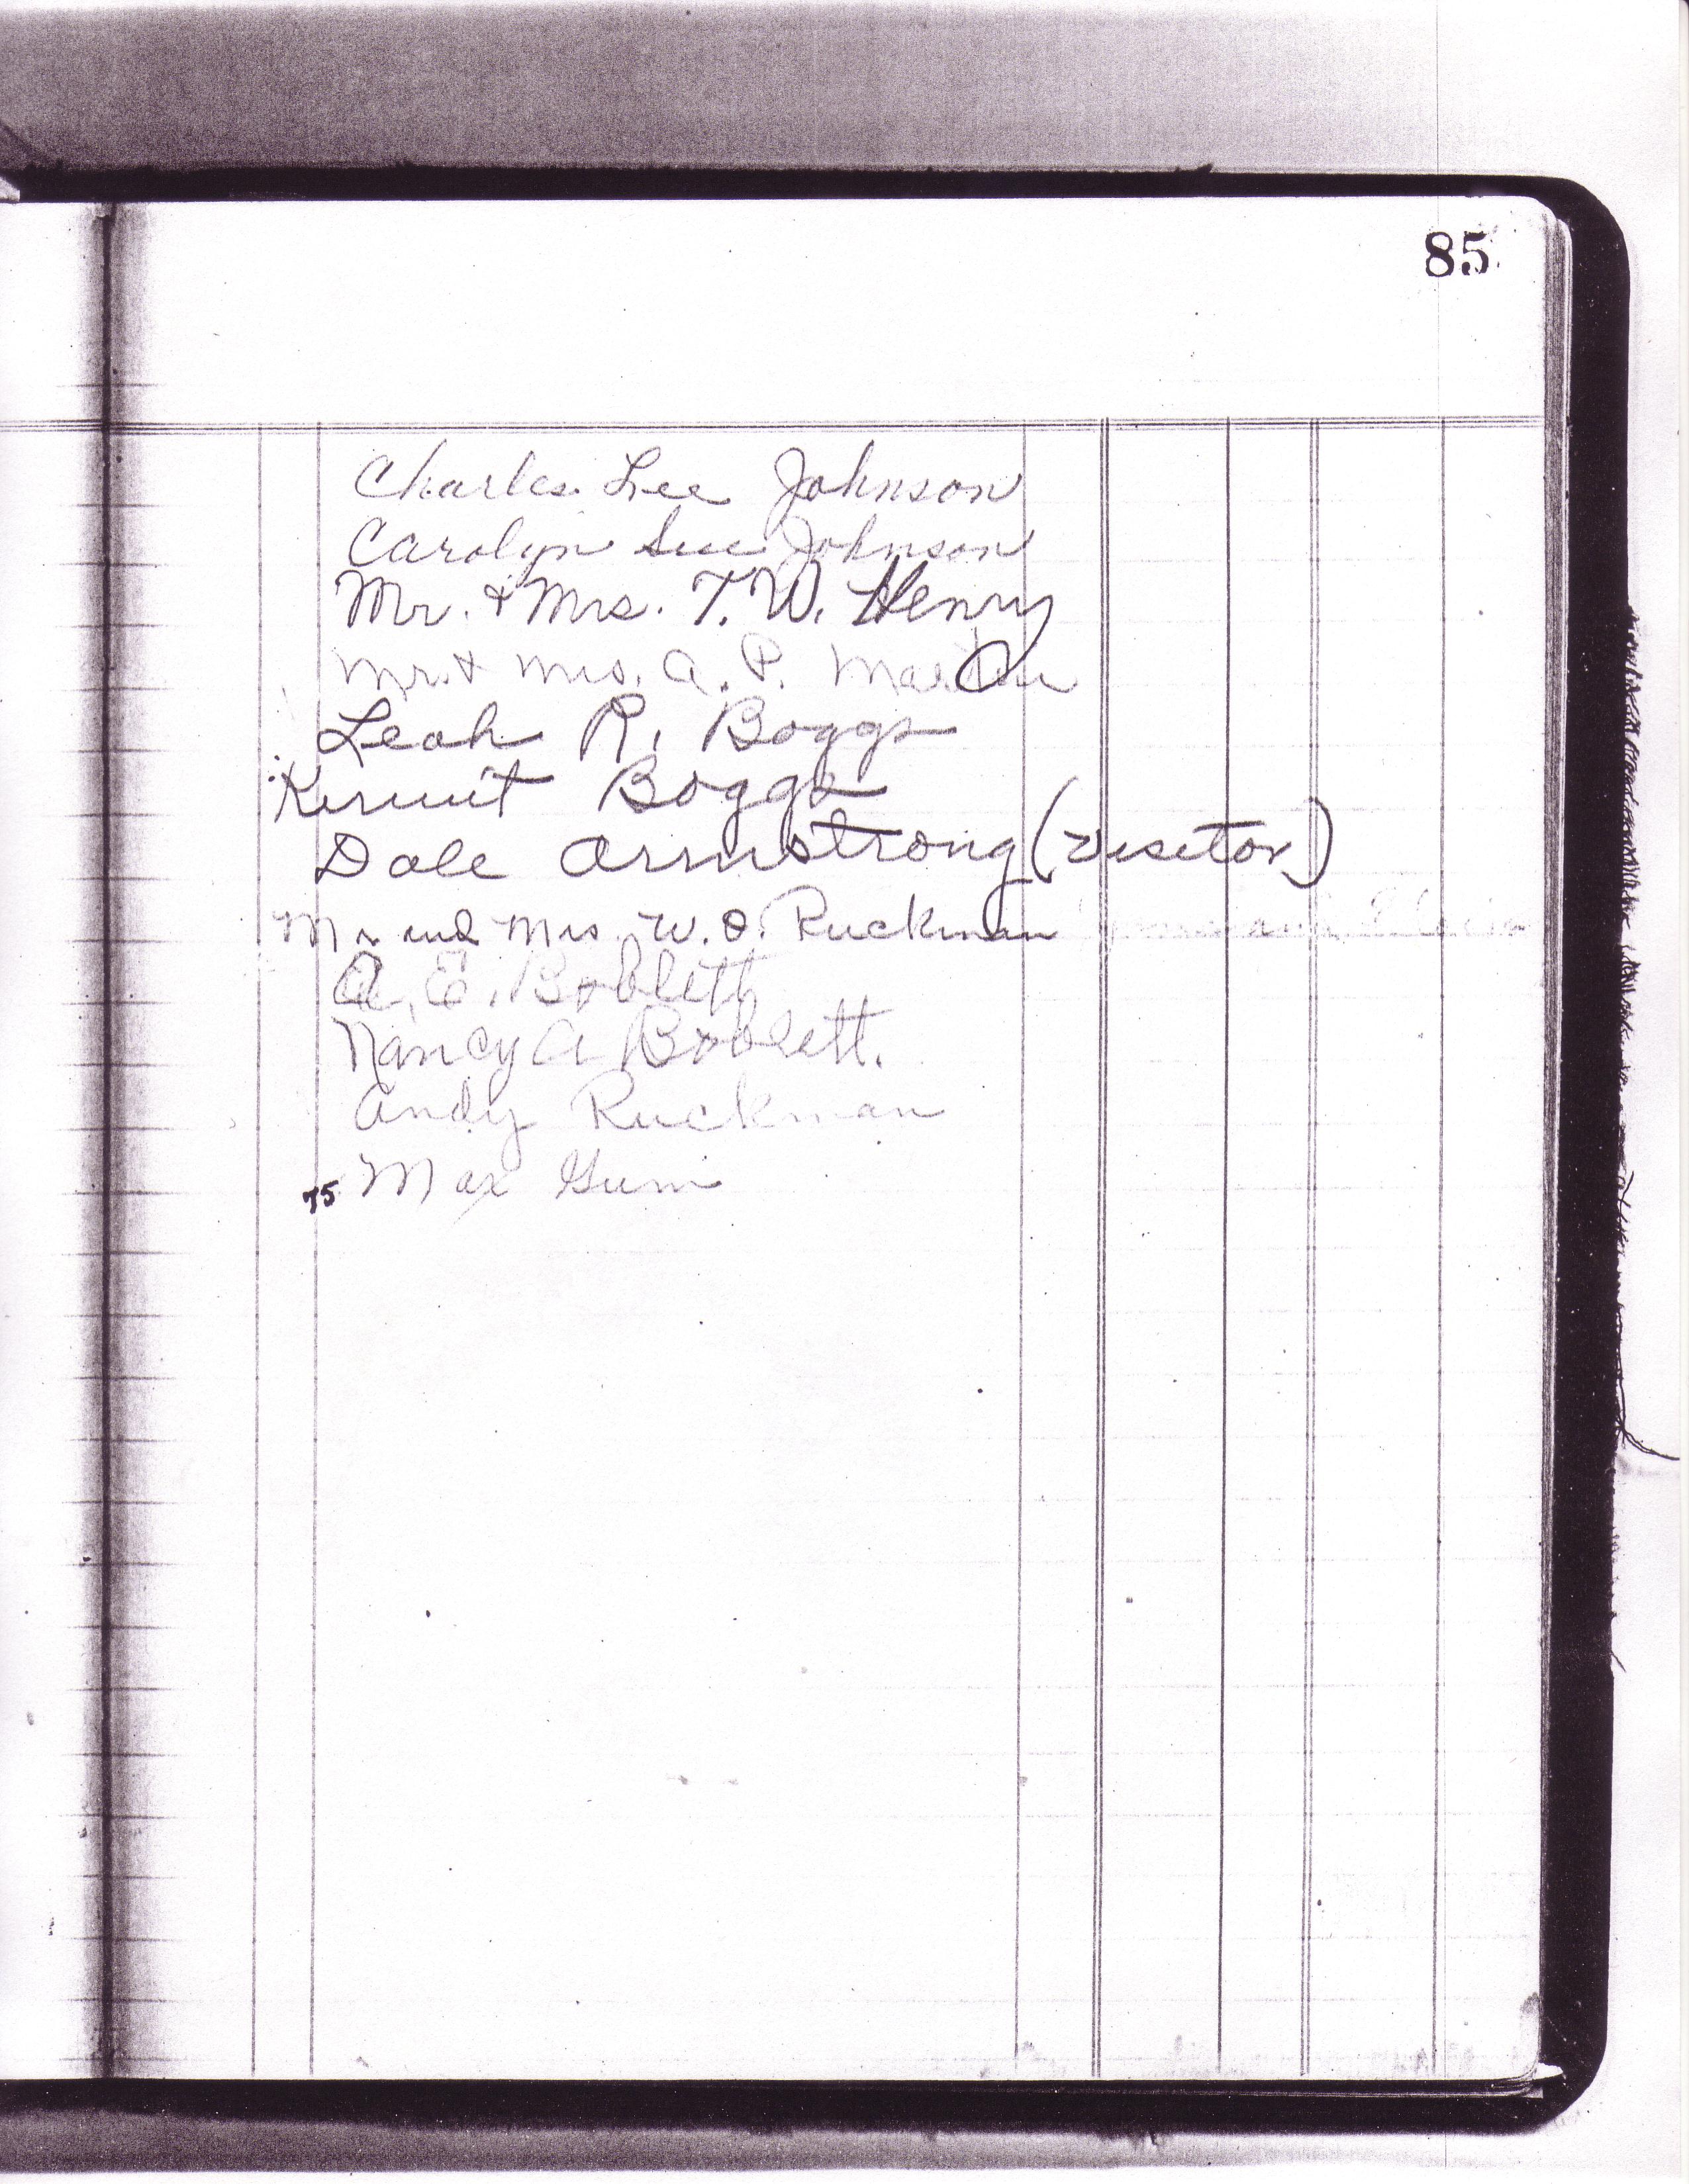 85
Charles Lee Johnson
Carolyn Sue Johnson
Mr. & Mrs. T. W. Henry
Mr. & Mrs. A. P. Martin
Leah R. Boggs
Kermit Boggs
Dale Armstrong (visitor)
Mr and Mrs. W. O. Ruckman
A. E. Boblett
Nancy A Boblett.
Andy Ruckman
75 Max Gum